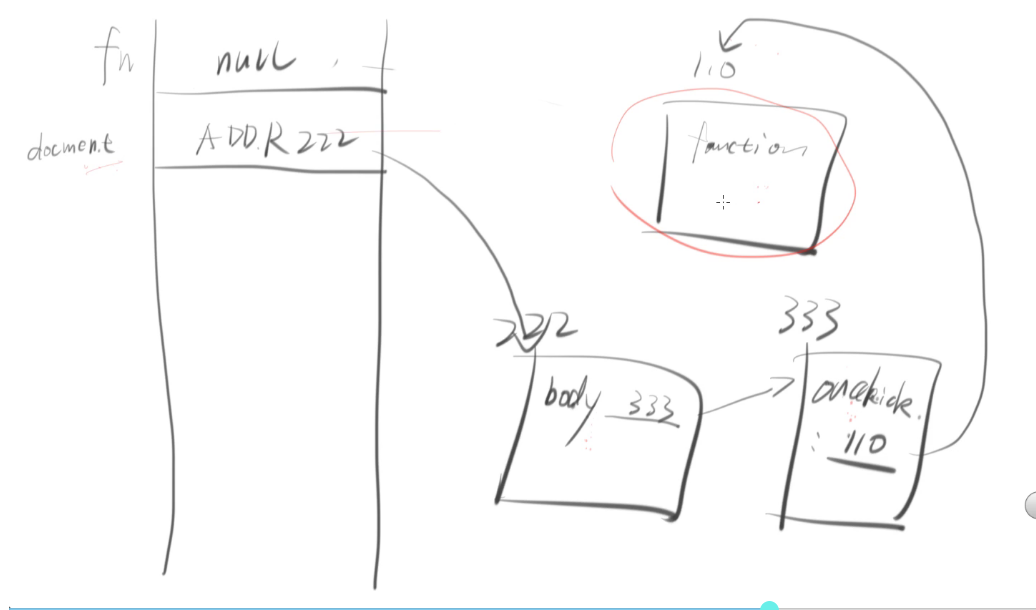 fn
null
docment
ADDR 222
110
function
222
body 333
333
onclick
: 110